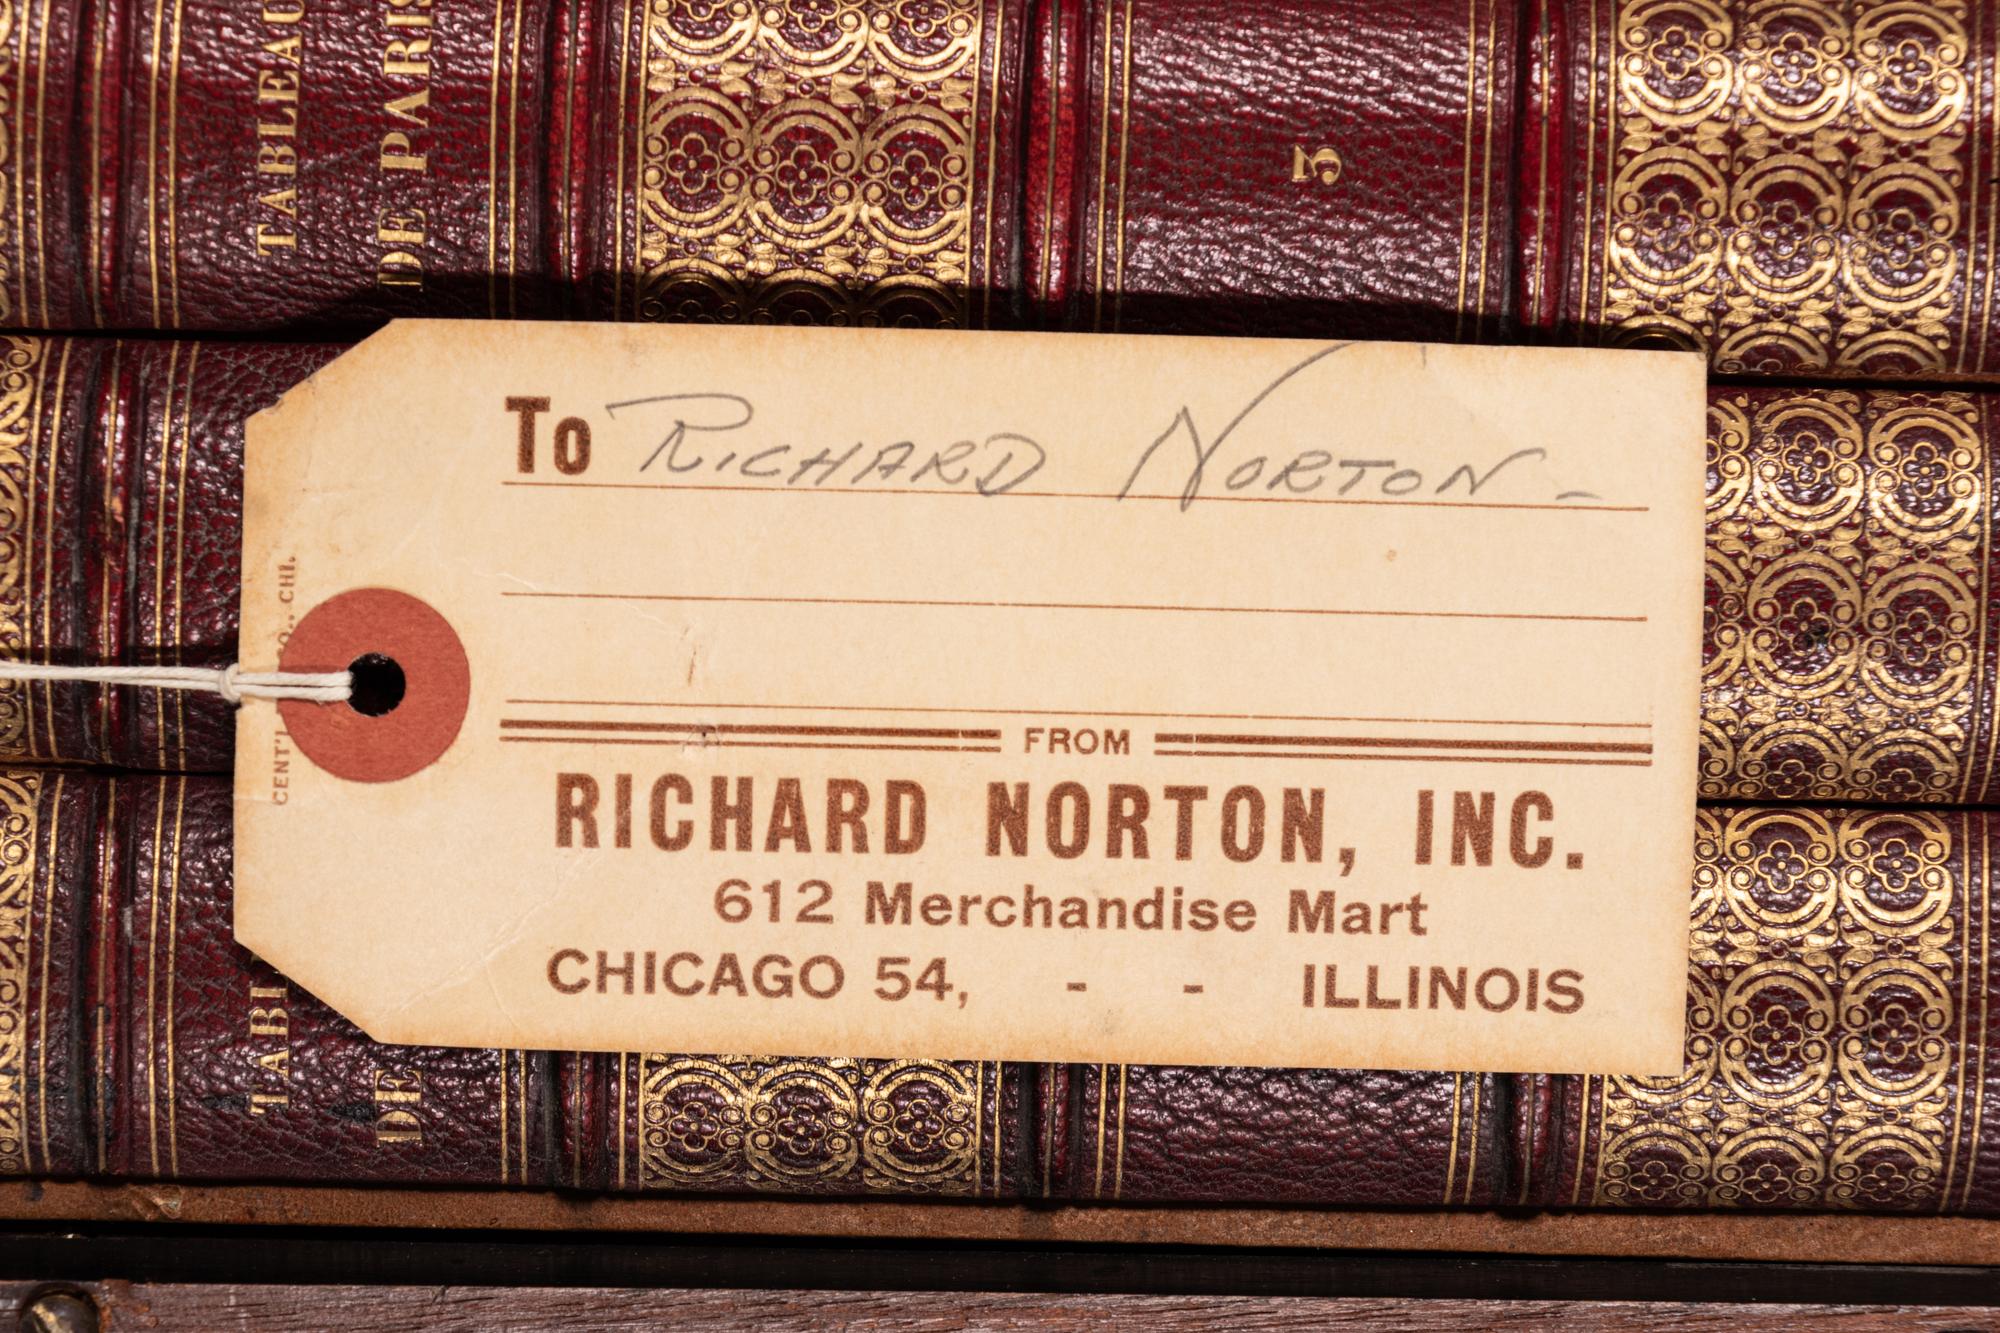 TABLEAU
DE PARIS
5
To RICHARD NORTON -
CENT'L CO., CHI.
FROM
RICHARD NORTON, INC.
612 Merchandise Mart
CHICAGO 54, - - ILLINOIS
DE